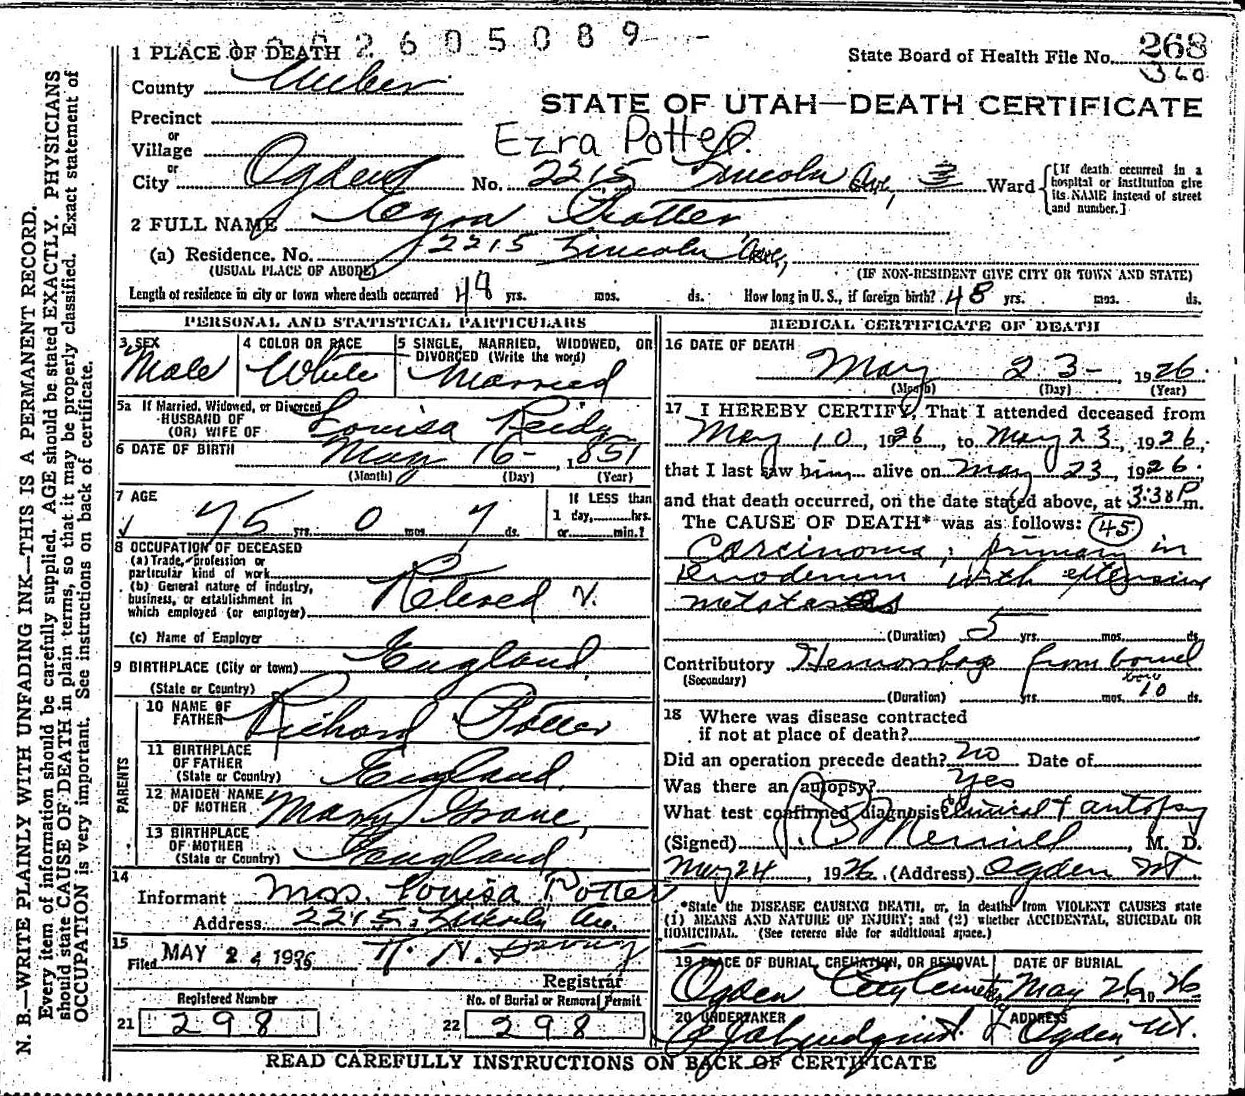 N. B.—WRITE PLAINLY WITH UNFADING INK—THIS IS A PERMANENT RECORD.
Every item of information should be carefully supplied. AGE should be stated EXACTLY. PHYSICIANS
should state CAUSE OF DEATH in plain terms, so that it may be properly classified. Exact statement of
OCCUPATION is very important. See instructions on back of certificate.
2605089
1 PLACE OF DEATH
State Board of Health File No. 268
360
County Weber
STATE OF UTAH—DEATH CERTIFICATE
Precinct
or
Village
Ezra Potter.
or
City Ogden No. 2215 Lincoln Ave, Ward
[If death occurred in a
hospital or institution give
its NAME instead of street
and number.]
2 FULL NAME Ezra Potter
(a) Residence. No. 2215 Lincoln Ave,
(USUAL PLACE OF ABODE) (IF NON-RESIDENT GIVE CITY OR TOWN AND STATE)
Length of residence in city or town where death occurred 48 yrs. mos. ds. How long in U. S., if foreign birth? 48 yrs. mos. ds.
PERSONAL AND STATISTICAL PARTICULARS
3 SEX
Male
4 COLOR OR RACE
White
5 SINGLE, MARRIED, WIDOWED, OR
DIVORCED (Write the word)
Married
5a If Married, Widowed, or Divorced
HUSBAND OF
(OR) WIFE OF Louisa Reidy
6 DATE OF BIRTH May 16- , 1851
(Month) (Day) (Year)
7 AGE
75 yrs. 0 mos. 7 ds.
If LESS than
1 day, hrs.
or min.?
8 OCCUPATION OF DECEASED
(a) Trade, profession or
particular kind of work
(b) General nature of industry,
business, or establishment in
which employed (or employer) Retired
(c) Name of Employer
9 BIRTHPLACE (City or town) England
(State or Country)
PARENTS
10 NAME OF
FATHER Richard Potter
11 BIRTHPLACE
OF FATHER
(State or Country) England
12 MAIDEN NAME
OF MOTHER Mary Grave,
13 BIRTHPLACE
OF MOTHER
(State or Country) England
14
Informant Mrs. Louisa Potter
Address 2215 Lincoln Ave.
15
Filed MAY 24 1926
Registrar
Registered Number
21 298
No. of Burial or Removal Permit
22 298
MEDICAL CERTIFICATE OF DEATH
16 DATE OF DEATH
May 23- 1926
(Month) (Day) (Year)
17 I HEREBY CERTIFY, That I attended deceased from
May 10, 1926, to May 23, 1926.
that I last saw him alive on May 23, 1926.
and that death occurred, on the date stated above, at 3:38 P m.
The CAUSE OF DEATH* was as follows: 45
Carcinoma; primary in
Duodenum with extensive
metastases
(Duration) 5 yrs. mos. ds.
Contributory Hemorrhage from bowel
(Secondary)
(Duration) yrs. mos. 10 ds.
18 Where was disease contracted
if not at place of death?
Did an operation precede death? no Date of
Was there an autopsy? yes
What test confirmed diagnosis Clinical + autopsy
(Signed) Merrill, M. D.
May 24 1926. (Address) Ogden Ut
*State the DISEASE CAUSING DEATH, or, in deaths from VIOLENT CAUSES state
(1) MEANS AND NATURE OF INJURY; and (2) whether ACCIDENTAL, SUICIDAL OR
HOMICIDAL. (See reverse side for additional space.)
19 PLACE OF BURIAL, CREMATION, OR REMOVAL
Ogden City Cemetery
DATE OF BURIAL
May 26, 1926
20 UNDERTAKER
ADDRESS
Ogden, Ut.
READ CAREFULLY INSTRUCTIONS ON BACK OF CERTIFICATE